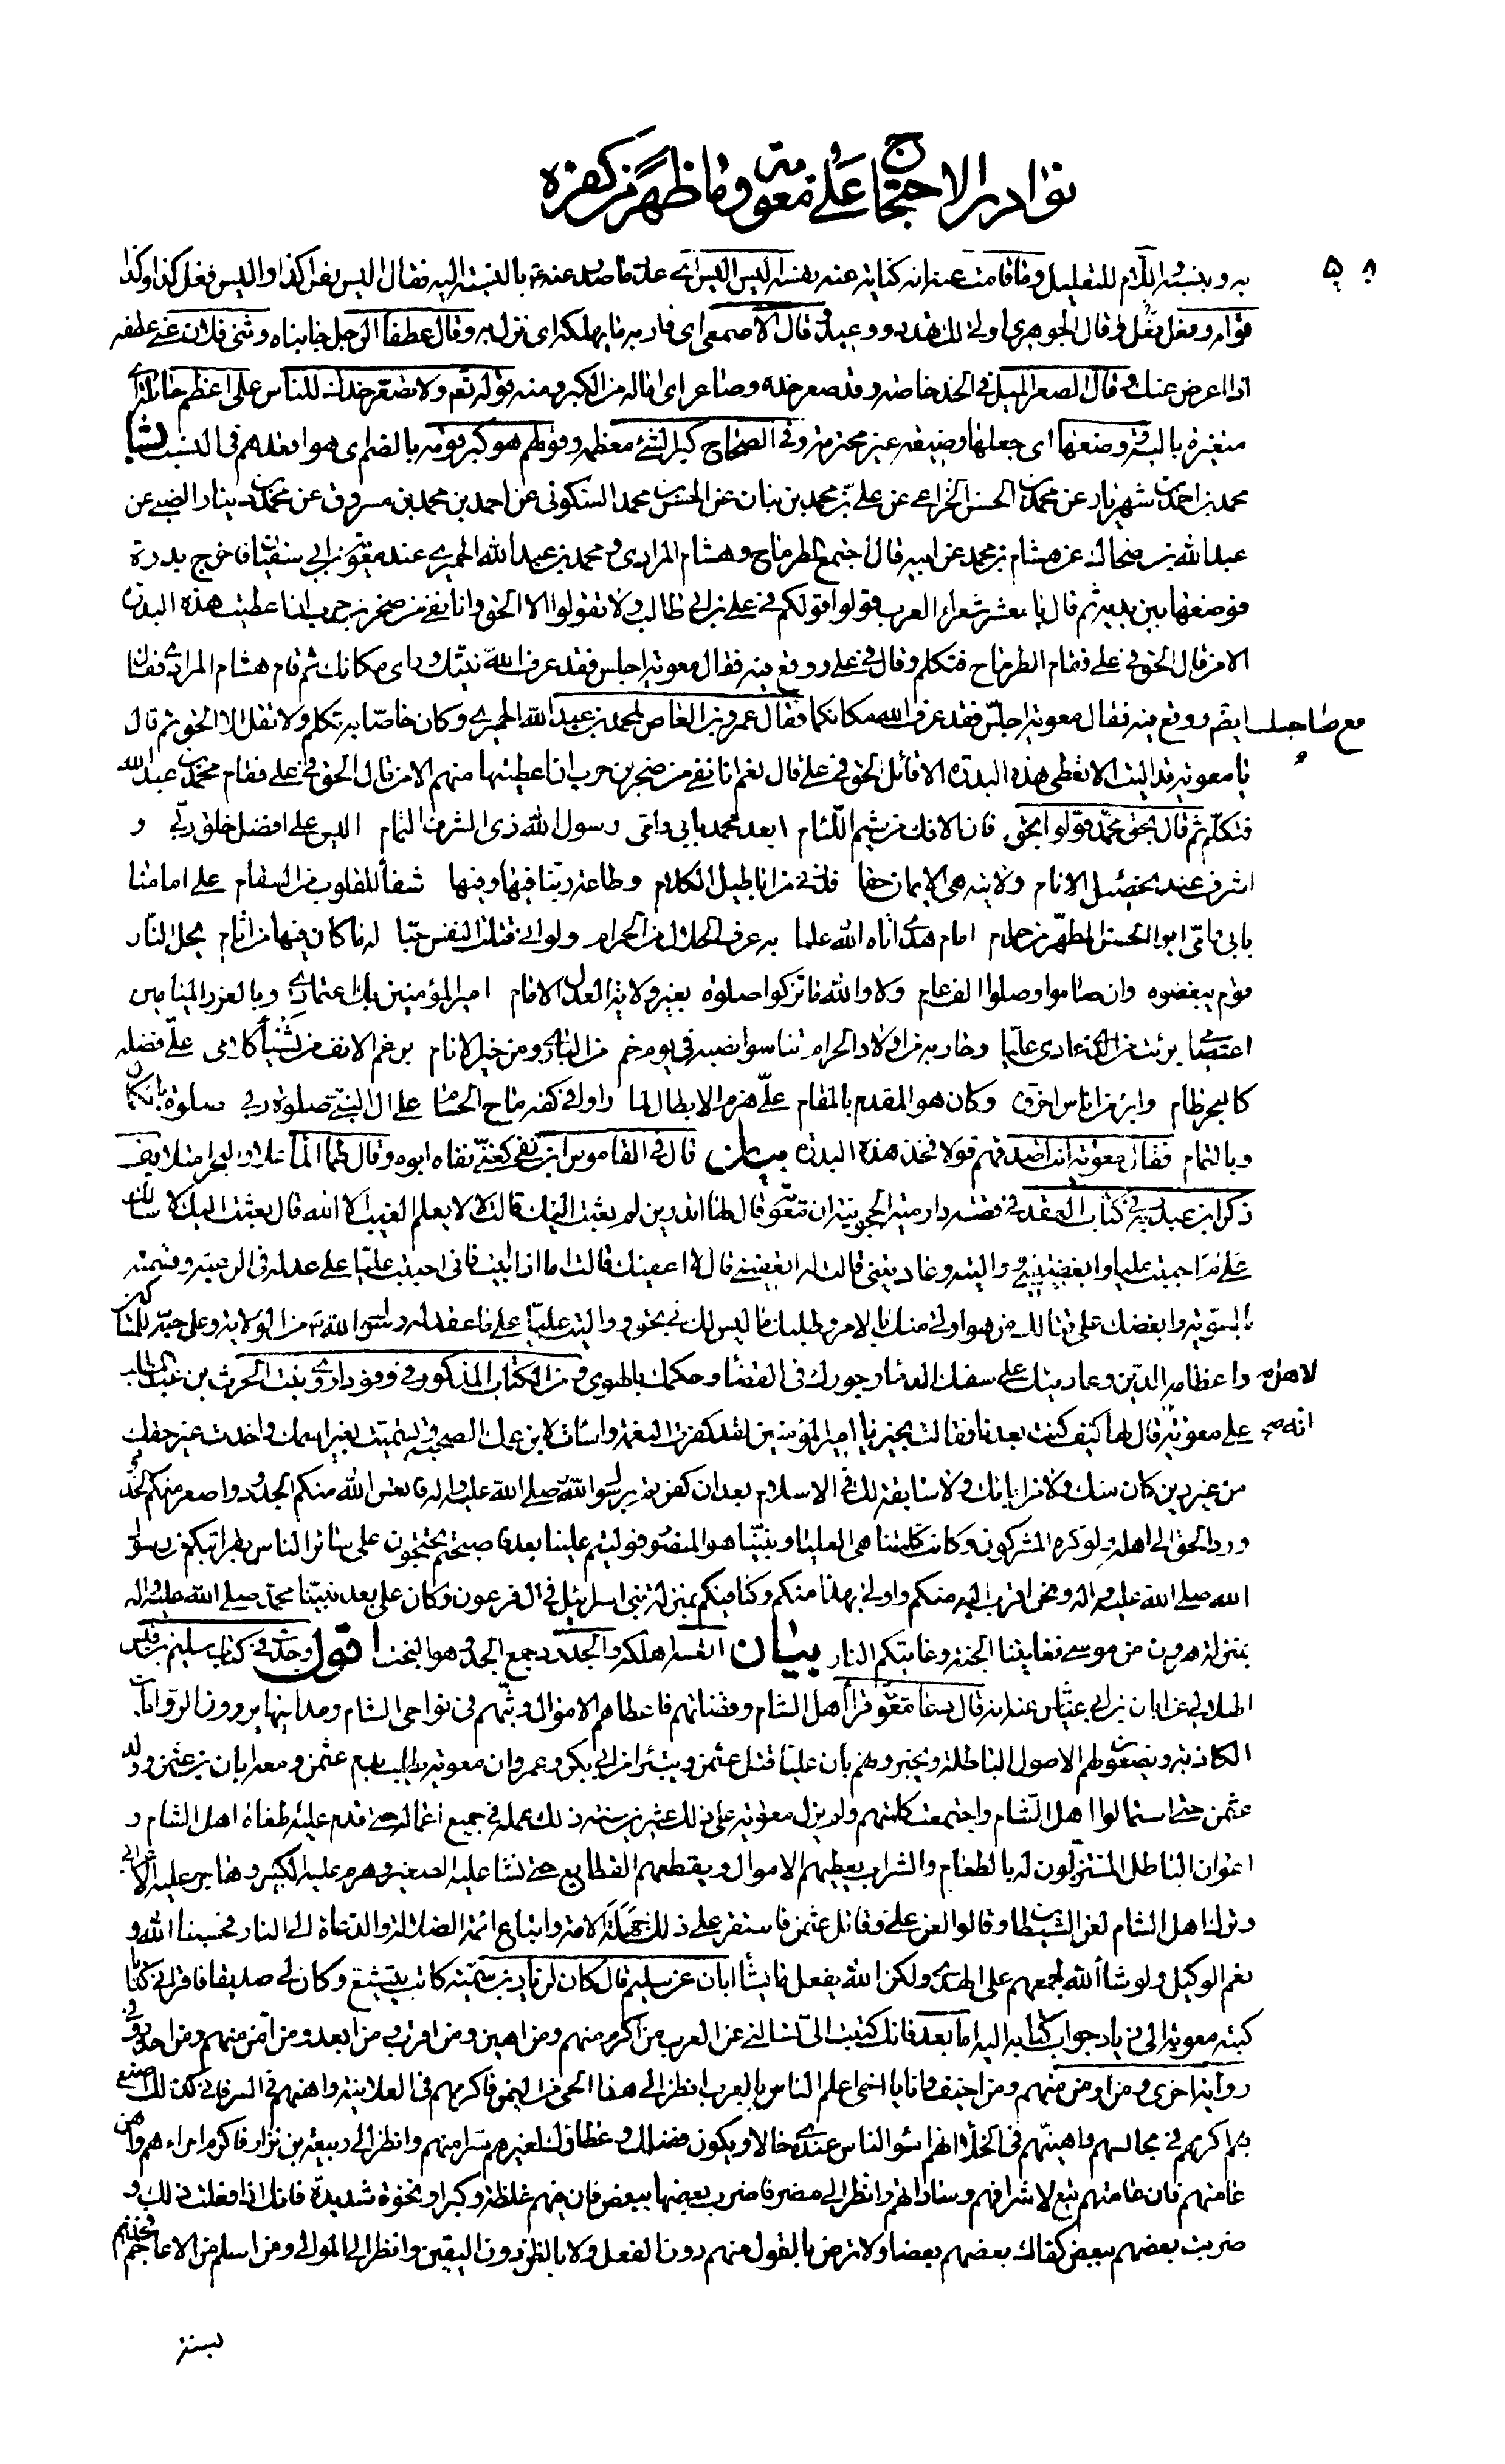 نوادر الاحتجاج على معوية وما ظهر من كفره
به وينسبه اللام للتعليل وما قامت عنه انه كناية عنه بفسه اليس اليس اى علة ما صدر عنه بالنسبة اليه فقال اليس يفر كذا واليس فعل كذا وكذا
قوام وفعل يفعل وقال الجوهرى اولى لك تهدد ووعيد قال الاصمعى اى قاربه ما يهلكه اى نزل به وقال عطفا الرجل جانباه وثنى فلان عنى عطفه
اذا اعرض عنك وقال الصعر الميل فى الخد خاصة وقد صعر خده وصاعر اى اماله من الكبر ومنه قوله تعم ولا تصعر خدك للناس على اعظم
وضعها اى جعلها وضيعة غير محترمة وفى الصحاح كبر الشئ معظمه وقولهم هو كبر قومه بالضم اى هو اقعدهم فى النسب بشا
محمد بن احمد بن شهريار عن محمد بن الحسن الخزاعى عن على بن محمد بن بنان عن الحسن بن محمد السكونى عن احمد بن محمد بن مسروق عن محمد بن دينار الضبى عن
عبد الله بن ضحاك عن هشام بن محمد عن ابيه قال اجتمع الطرماح وهشام المرادى ومحمد بن عبد الله الحميرى عند معوية بن ابى سفيان فاخرج بدرة
فوضعها بين يديه ثم قال يا معشر شعراء العرب قولوا قولكم فى على بن ابى طالب ولا تقولوا الا الحق وانا نفى من صخر بن حرب ان اعطيت هذه البدرة
الا من قال الحق فى على فقام الطرماح فتكلم وقال فى على ووقع فيه فقال معوية اجلس فقد عرف الله نيتك وراى مكانك ثم قام هشام المرادى فقال
ايضا ووقع فيه فقال معوية اجلس مع صاحبك فقد عرف الله مكانكما فقال عمرو بن العاص لمحمد بن عبد الله الحميرى وكان خاصا به تكلم ولا تقل الا الحق ثم قال
يا معوية قد اليت الا تعطى هذه البدرة الا قائل الحق فى على قال نعم انا نفى من صخر بن حرب ان اعطيتها منهم الا من قال الحق فى على فقام محمد بن عبد الله
فتكلم ثم قال بحق محمد قولوا بحق فان الافك من شيم اللئام ابعد محمد بابى وامى رسول الله ذى الشرف التمام اليس على افضل خلق ربى و
اشرف عند تحصيل الانام ولايته هى الايمان حقا فذرنى من اباطيل الكلام وطاعة ربنا فيها وفيها شفاء للقلوب من السقام على امامنا
بابى وامى ابو الحسن المطهر من حرام امام هدى اتاه الله علما به عرف الحلال من الحرام ولو انى قتلت النفس حبا له ما كان فيها من اثام يحل النار
قوم يبغضوه وان صاموا وصلوا الف عام ولا والله ما تزكوا صلوة بغير ولاية العدل الامام امير المؤمنين بك اعتمادى وبالغر الميامين
اعتصامى برئت من الذى عادى عليا وحاربه من اولاد الحرام تناسوا نصبه فى يوم خم من البارى ومن خير الانام برغم الانف من يشنأ كلامى على فضله
كالبحر طام وابرء من اناس اخروه وكان هو المقدم بالمقام على هزم الابطال لما راوا فى كفه ماح الحسام على ال النبى صلوة ربى صلوة بالكمال
وبالتمام فقال معوية انت اصدقهم قولا فخذ هذه البدرة بيان قال فى القاموس ابن نفى كغنى نفاه ابوه وقال طما الماء علا والبحر امتلا يف
ذكر ابن عبد ربه فى كتاب العقد فى قصة دارمية الحجونية ان معوية قال لها اتدرين لم بعثت اليك قالت لا يعلم الغيب الا الله قال بعثت اليك لاسالك
على م احببت عليا وابغضتينى وواليته وعاديتنى قالت له اتعفينى قال لا اعفيك قالت اما اذا ابيت فانى احببت عليا على عدله فى الرعية وقسمته
بالسوية وابغضك على قتالك من هو اولى منك بالامر وطلبك ما ليس لك بحق وواليت عليا على ما عقد له رسول الله من الولاية وعلى حبه للمساكين
واعظامه لاهل الدين وعاديتك على سفك الدماء وجورك فى القضاء وحكمك بالهوى ف من الكتاب المذكور فى وفود اروى بنت الحرث بن عبد المطلب
على معوية انه قال لها كيف كنت بعدنا فقالت بخير يا امير المؤمنين لقد كفرت النعمة واسات لابن عمك الصحبة وتسميت بغير اسمك واخذت غير حقك
من غير دين كان منك ولا من ابائك ولا سابقة لك فى الاسلام بعد ان كفرتم برسول الله صلى الله عليه واله فاتعس الله منكم الجدود واصعر منكم الخدود
ورد الحق الى اهله ولو كره المشركون وكانت كلمتنا هى العليا ونبينا هو المنصور فوليتم علينا بعده فاصبحتم تحتجون على سائر الناس بقرابتكم من رسول
الله صلى الله عليه واله ونحن اقرب اليه منكم واولى بهذا منكم وكنا فيكم بمنزلة بنى اسرائيل فى ال فرعون وكان على بعد نبينا محمد صلى الله عليه واله
بمنزلة هرون من موسى فغايتنا الجنة وغايتكم النار بيان اتعسه اهلكه والجدود جمع الجد وهو البخت اقول وجدت فى كتاب سليم بن قيس
الهلالى عن ابان بن ابى عياش عنه انه قال دعا معوية قراء اهل الشام وقضاتهم فاعطاهم الاموال وبثهم فى نواحى الشام ومداينها يروون الروايات
الكاذبة ويضعون لهم الاصول الباطلة ويخبروهم بان عليا قتل عثمن ويتبرء من ابى بكر وعمر وان معوية يطلب بدم عثمن ومعه ابان بن عثمن وولد
عثمن حتى استمالوا اهل الشام واجتمعت كلمتهم ولم يزل معوية على ذلك عشرين سنة ذلك عمله فى جميع اعماله حتى قدم عليه طغاة اهل الشام و
اعوان الباطل المتنزلون له بالطعام والشراب يعطيهم الاموال ويقطعهم القطايع حتى نشا عليه الصغير وهرم عليه الكبير وهاجر عليه الاعرابى
وترك اهل الشام لعن الشيطان وقالوا لعن على وقاتل عثمن فاستقر على ذلك جهلة الامة واتباع ائمة الضلالة والدعاة الى النار فحسبنا الله و
نعم الوكيل ولو شاء الله لجمعهم على الهدى ولكن الله يفعل ما يشاء ابان عن سليم قال كان لزياد بن سمية كاتب يتشيع وكان لى صديقا فاقرانى كتابا
كتبه معوية الى زياد جواب كتابه اليه اما بعد فانك كتبت الى تسالنى عن العرب من اكرم منهم ومن اهين ومن اقرب ومن ابعد ومن امن منهم ومن احذر وفى
رواية اخرى ومن اومن منهم ومن اخيف وانا يا اخى اعلم الناس بالعرب انظر الى هذا الحى من اليمن فاكرمهم فى العلانية واهنهم فى السر فانى كذلك اصنع
بهم اكرمهم فى مجالسهم واهينهم فى الخلاء انهم اسوء الناس عندى حالا ويكون فضلك وعطاؤك لغيرهم سرا منهم وانظر الى ربيعة بن نزار فاكرم امراءهم واهن
عامتهم فان عامتهم تبع لاشرافهم وساداتهم وانظر الى مضر فاضرب بعضها ببعض فان فيهم غلظة وكبرا ونخوة شديدة فانك اذا فعلت ذلك و
ضربت بعضهم ببعض كفاك بعضهم بعضا ولا ترض بالقول منهم دون الفعل ولا بالظن دون اليقين وانظر الى الموالى ومن اسلم من الاعاجم فخذهم
بسنة